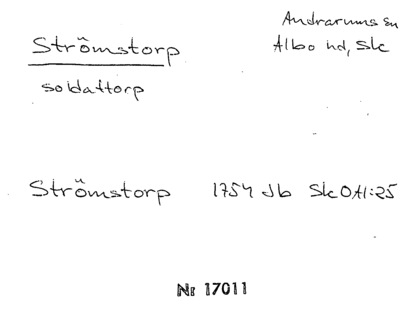 Strömstorp
Andrarums sn
Albo hd, Sk
soldattorp
Strömstorp 1754 Jb Sk OA1:25
Nr 17011